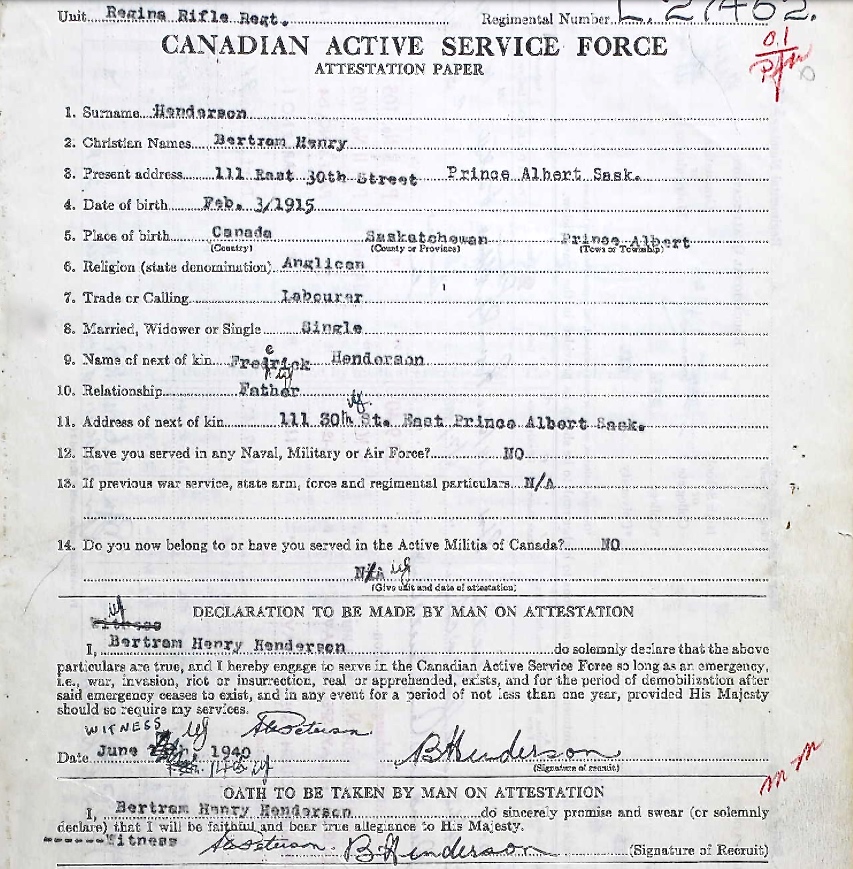 Unit Regina Rifle Regt. Regimental Number L. 27462.
CANADIAN ACTIVE SERVICE FORCE
ATTESTATION PAPER
1. Surname Henderson
2. Christian Names Bertram Henry
3. Present address 111 East 30th Street Prince Albert Sask.
4. Date of birth Feb. 3/1915
5. Place of birth Canada Saskatchewan Prince Albert
(Country) (County or Province) (Town or Township)
6. Religion (state denomination) Anglican
7. Trade or Calling Labourer
8. Married, Widower or Single Single
9. Name of next of kin Fredrick Henderson
10. Relationship Father
11. Address of next of kin 111 30th St. East Prince Albert Sask.
12. Have you served in any Naval, Military or Air Force? NO
13. If previous war service, state arm, force and regimental particulars N/A
14. Do you now belong to or have you served in the Active Militia of Canada? NO
N/A
(Give unit and date of attestation)
DECLARATION TO BE MADE BY MAN ON ATTESTATION
Witness
I, Bertram Henry Henderson do solemnly declare that the above
particulars are true, and I hereby engage to serve in the Canadian Active Service Force so long as an emergency,
i.e., war, invasion, riot or insurrection, real or apprehended, exists, and for the period of demobilization after
said emergency ceases to exist, and in any event for a period of not less than one year, provided His Majesty
should so require my services.
WITNESS
Date June 1940 BHenderson
(Signature of recruit)
OATH TO BE TAKEN BY MAN ON ATTESTATION
I, Bertram Henry Henderson do sincerely promise and swear (or solemnly
declare) that I will be faithful and bear true allegiance to His Majesty.
Witness B Henderson (Signature of Recruit)